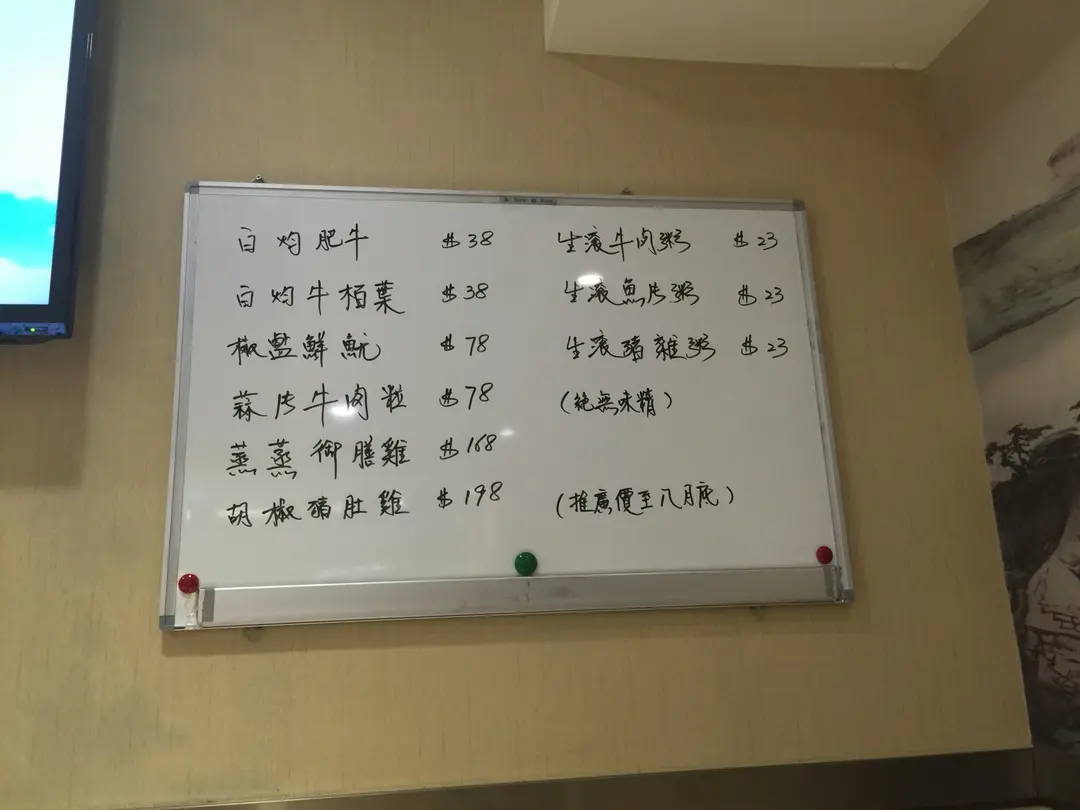 白灼肥牛 $38
白灼牛栢葉 $38
椒盐鮮魷 $78
蒜片牛肉粒 $78
蒸蒸御膳雞 $168
胡椒豬肚雞 $198
生滾牛肉粥 $23
生滾魚片粥 $23
生滾豬雜粥 $23
(絕無味精)
(推廣價至八月底)